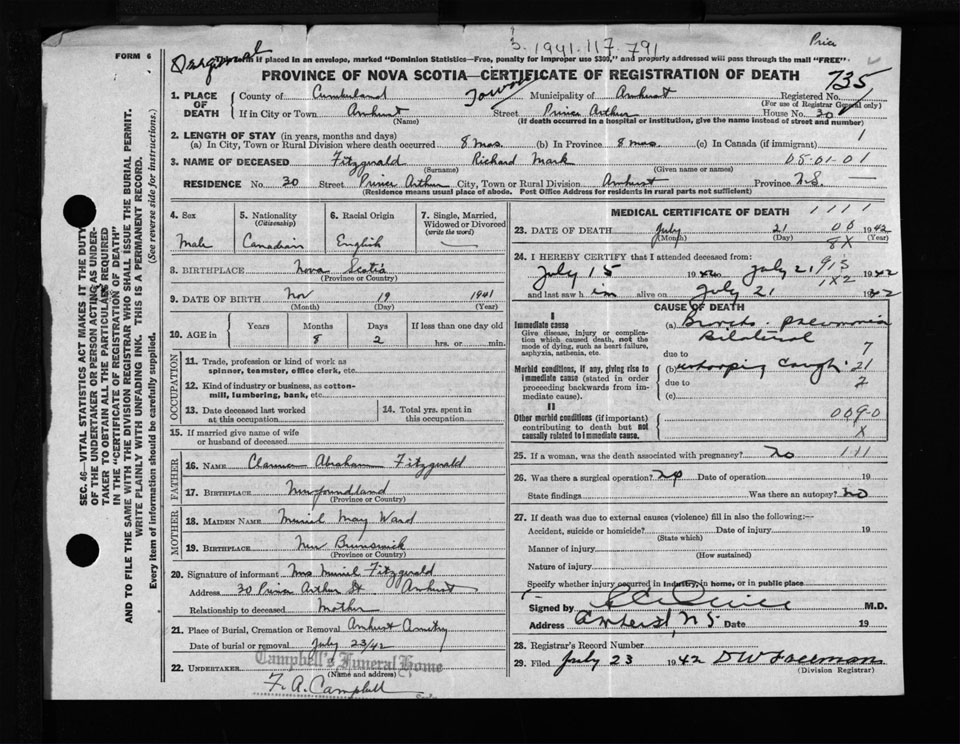 Price
S. 1941.117.791
FORM 6
form if placed in an envelope, marked "Dominion Statistics—Free, penalty for improper use $300," and properly addressed will pass through the mail "FREE".
PROVINCE OF NOVA SCOTIA—CERTIFICATE OF REGISTRATION OF DEATH
735
1. PLACE OF DEATH
County of Cumberland Town Municipality of Amherst Registered No.
(For use of Registrar General only)
If in City or Town Amherst Street Prince Arthur House No. 30
(Name) (If death occurred in a hospital or institution, give the name instead of street and number)
2. LENGTH OF STAY (in years, months and days)
(a) In City, Town or Rural Division where death occurred 8 mos. (b) In Province 8 mos. (c) In Canada (if immigrant) 1
3. NAME OF DECEASED Fitzgerald Richard Mark 05-01-01
(Surname) (Given name or names)
RESIDENCE No. 30 Street Prince Arthur City, Town or Rural Division Amherst Province N.S.
(Residence means usual place of abode. Post Office Address for residents in rural parts not sufficient)
4. Sex
Male
5. Nationality
(Citizenship)
Canadian
6. Racial Origin
English
7. Single, Married, Widowed or Divorced
(write the word)
8. BIRTHPLACE Nova Scotia
(Province or Country)
9. DATE OF BIRTH Nov 19 1941
(Month) (Day) (Year)
10. AGE in
Years Months Days If less than one day old
8 2 hrs. or min.
OCCUPATION
11. Trade, profession or kind of work as spinner, teamster, office clerk, etc.
12. Kind of industry or business, as cotton-mill, lumbering, bank, etc.
13. Date deceased last worked at this occupation
14. Total yrs. spent in this occupation
15. If married give name of wife or husband of deceased
FATHER
16. NAME Clarence Abraham Fitzgerald
17. BIRTHPLACE Newfoundland
(Province or Country)
MOTHER
18. MAIDEN NAME Muriel May Ward
19. BIRTHPLACE New Brunswick
(Province or Country)
20. Signature of informant Mrs Muriel Fitzgerald
Address 30 Prince Arthur St Amherst
Relationship to deceased Mother
21. Place of Burial, Cremation or Removal Amherst
Date of burial or removal July 23/42
Campbell's Funeral Home
22. UNDERTAKER
(Name and address)
F. A. Campbell
MEDICAL CERTIFICATE OF DEATH 1111
23. DATE OF DEATH July 21 00 1942
(Month) (Day) 8X (Year)
24. I HEREBY CERTIFY that I attended deceased from:
July 15 1942 to July 21 1942
and last saw h im alive on July 21 1942
CAUSE OF DEATH
I
Immediate cause
Give disease, injury or complication which caused death, not the mode of dying, such as heart failure, asphyxia, asthenia, etc.
(a) Broncho-pneumonia
Bilateral
due to 7
Morbid conditions, if any, giving rise to immediate cause (stated in order proceeding backwards from immediate cause).
(b) whooping cough 21
due to 2
(c)
II
Other morbid conditions (if important) contributing to death but not causally related to immediate cause.
009-0
X
25. If a woman, was the death associated with pregnancy? no 111
26. Was there a surgical operation? no Date of operation 19
State findings Was there an autopsy? no
27. If death was due to external causes (violence) fill in also the following:—
Accident, suicide or homicide? Date of injury 19
(State which)
Manner of injury
(How sustained)
Nature of injury
Specify whether injury occurred in industry, in home, or in public place
Signed by M.D.
Address Amherst, N S Date 19
28. Registrar's Record Number
29. Filed July 23 1942
(Division Registrar)
SEC. 46—VITAL STATISTICS ACT MAKES IT THE DUTY
OF THE UNDERTAKER OR PERSON ACTING AS UNDER-
TAKER TO OBTAIN ALL THE PARTICULARS REQUIRED
IN THE "CERTIFICATE OF REGISTRATION OF DEATH"
AND TO FILE THE SAME WITH THE DIVISION REGISTRAR WHO SHALL ISSUE THE BURIAL PERMIT.
WRITE PLAINLY WITH UNFADING INK. THIS IS A PERMANENT RECORD.
Every item of information should be carefully supplied. (See reverse side for instructions.)